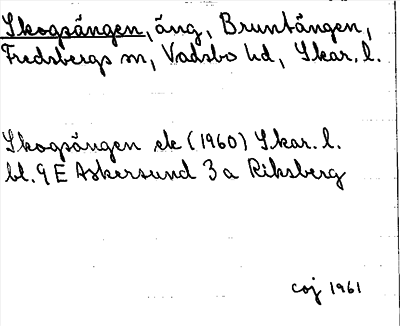 Skogsängen, äng, Bruntängen,
Fredsbergs sn, Vadsbo hd, Skar. l.
Skogsängen ek (1960) Skar. l.
bl. 9 E Askersund 3 a Riksberg
coj 1961